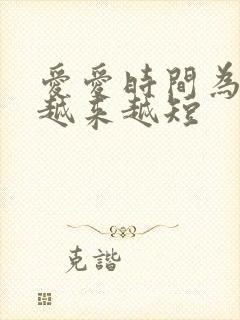 愛愛時間為
越来越短
克諧